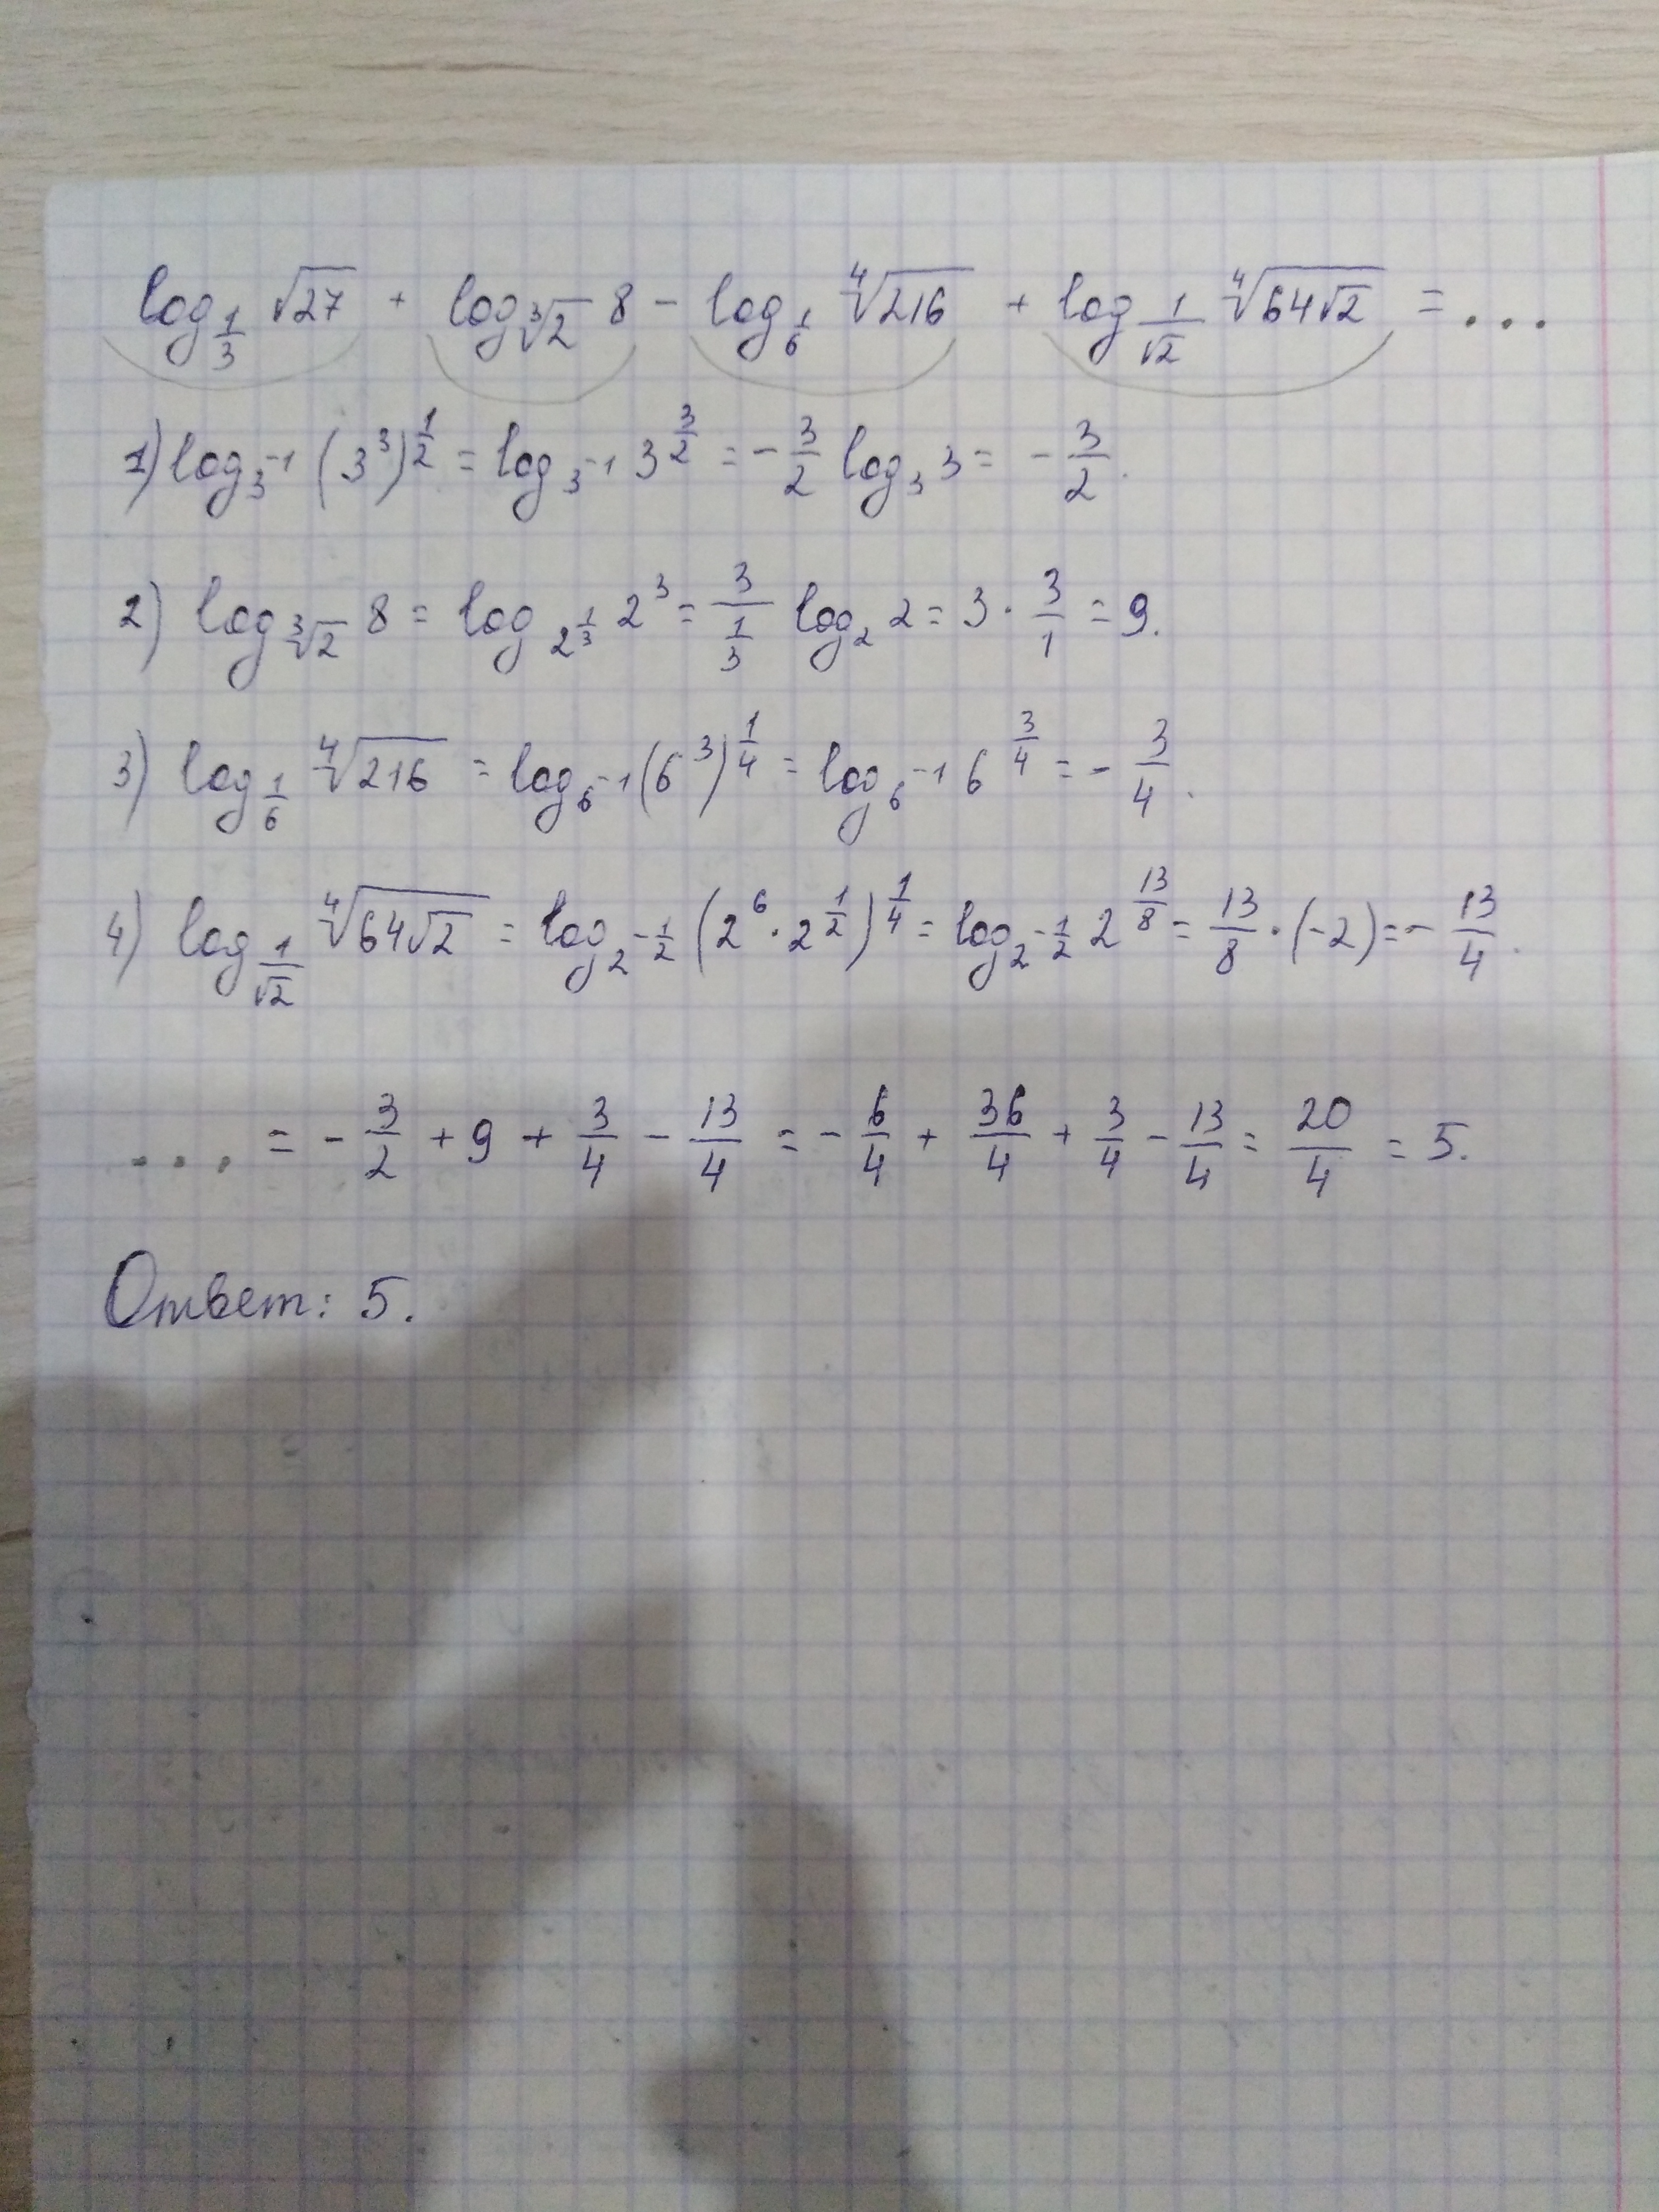 log_{1/3} √27 + log_{∛2} 8 − log_{1/6} ∜216 + log_{1/√2} ∜(64√2) = ...
1) log_{3^{-1}} (3^3)^{1/2} = log_{3^{-1}} 3^{3/2} = − 3/2 log_3 3 = − 3/2.
2) log_{∛2} 8 = log_{2^{1/3}} 2^3 = 3/(1/3) log_2 2 = 3 · 3/1 = 9.
3) log_{1/6} ∜216 = log_{6^{-1}} (6^3)^{1/4} = log_{6^{-1}} 6^{3/4} = − 3/4.
4) log_{1/√2} ∜(64√2) = log_{2^{-1/2}} (2^6 · 2^{1/2})^{1/4} = log_{2^{-1/2}} 2^{13/8} = 13/8 · (−2) = − 13/4.
... = − 3/2 + 9 + 3/4 − 13/4 = − 6/4 + 36/4 + 3/4 − 13/4 = 20/4 = 5.
Ответ: 5.